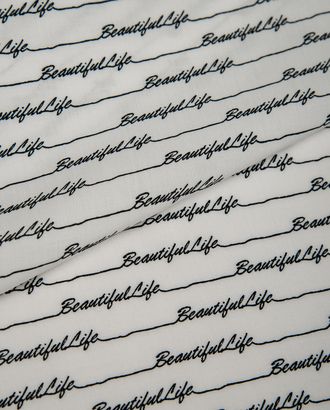 BeautifulLife
BeautifulLife BeautifulLife
BeautifulLife BeautifulLife
BeautifulLife BeautifulLife
BeautifulLife BeautifulLife
BeautifulLife BeautifulLife
BeautifulLife BeautifulLife
BeautifulLife BeautifulLife
BeautifulLife BeautifulLife
BeautifulLife BeautifulLife
BeautifulLife BeautifulLife
BeautifulLife BeautifulLife
BeautifulLife